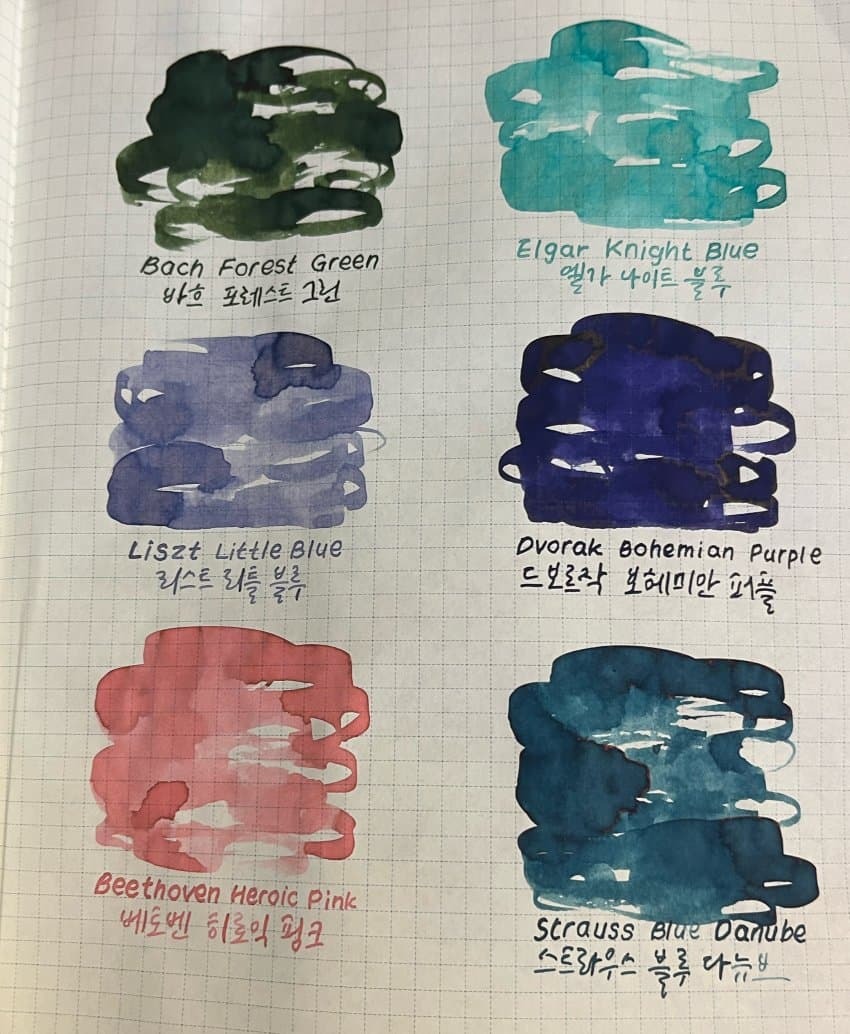 Bach Forest Green
바흐 포레스트 그린
Elgar Knight Blue
엘가 나이트 블루
Liszt Little Blue
리스트 리틀 블루
Dvorak Bohemian Purple
드보르작 보헤미안 퍼플
Beethoven Heroic Pink
베토벤 히로익 핑크
Strauss Blue Danube
스트라우스 블루 다뉴브